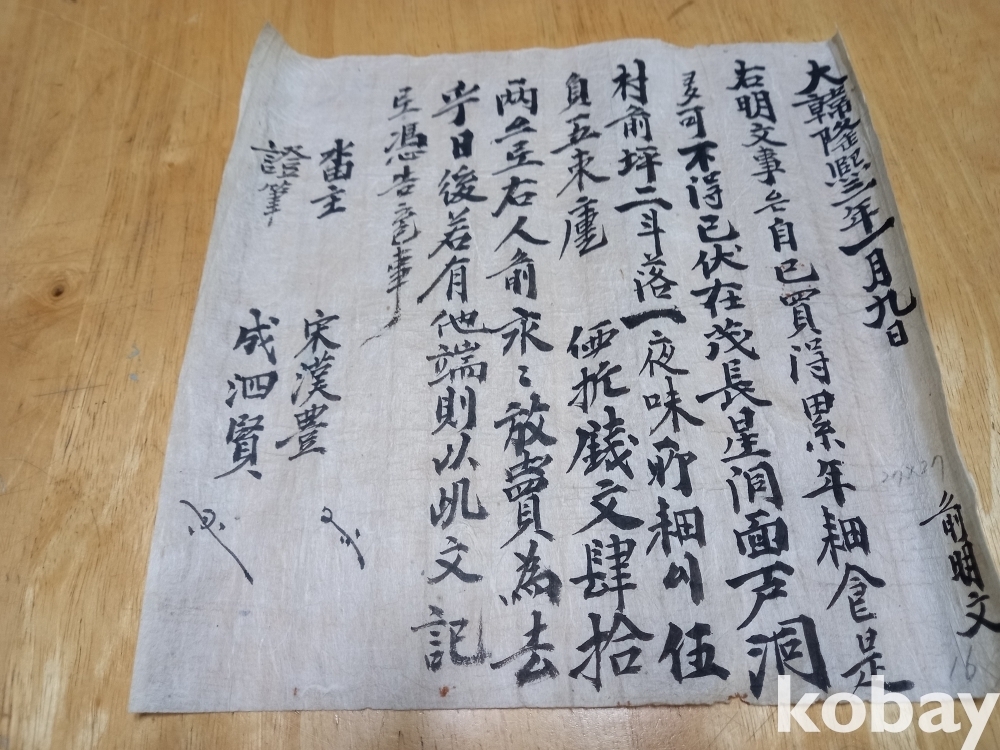 大韓隆熙三年一月九日 前明文
右明文事段自己買得累年耕食是
多可不得已伏在茂長星洞面戶洞
村前坪二斗落一夜味所耕〃伍
負五束庫 価折錢文肆拾
兩乙 右人前永〻放賣爲去
乎日後若有他端則以此文記
憑告官事
畓主 宋漢豊
證筆 成泗賢
27×27
16
kobay